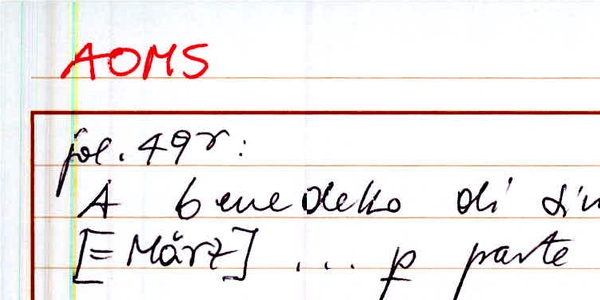 AOMS
fol. 49r:
A benedetto di
[= März] ... p parte